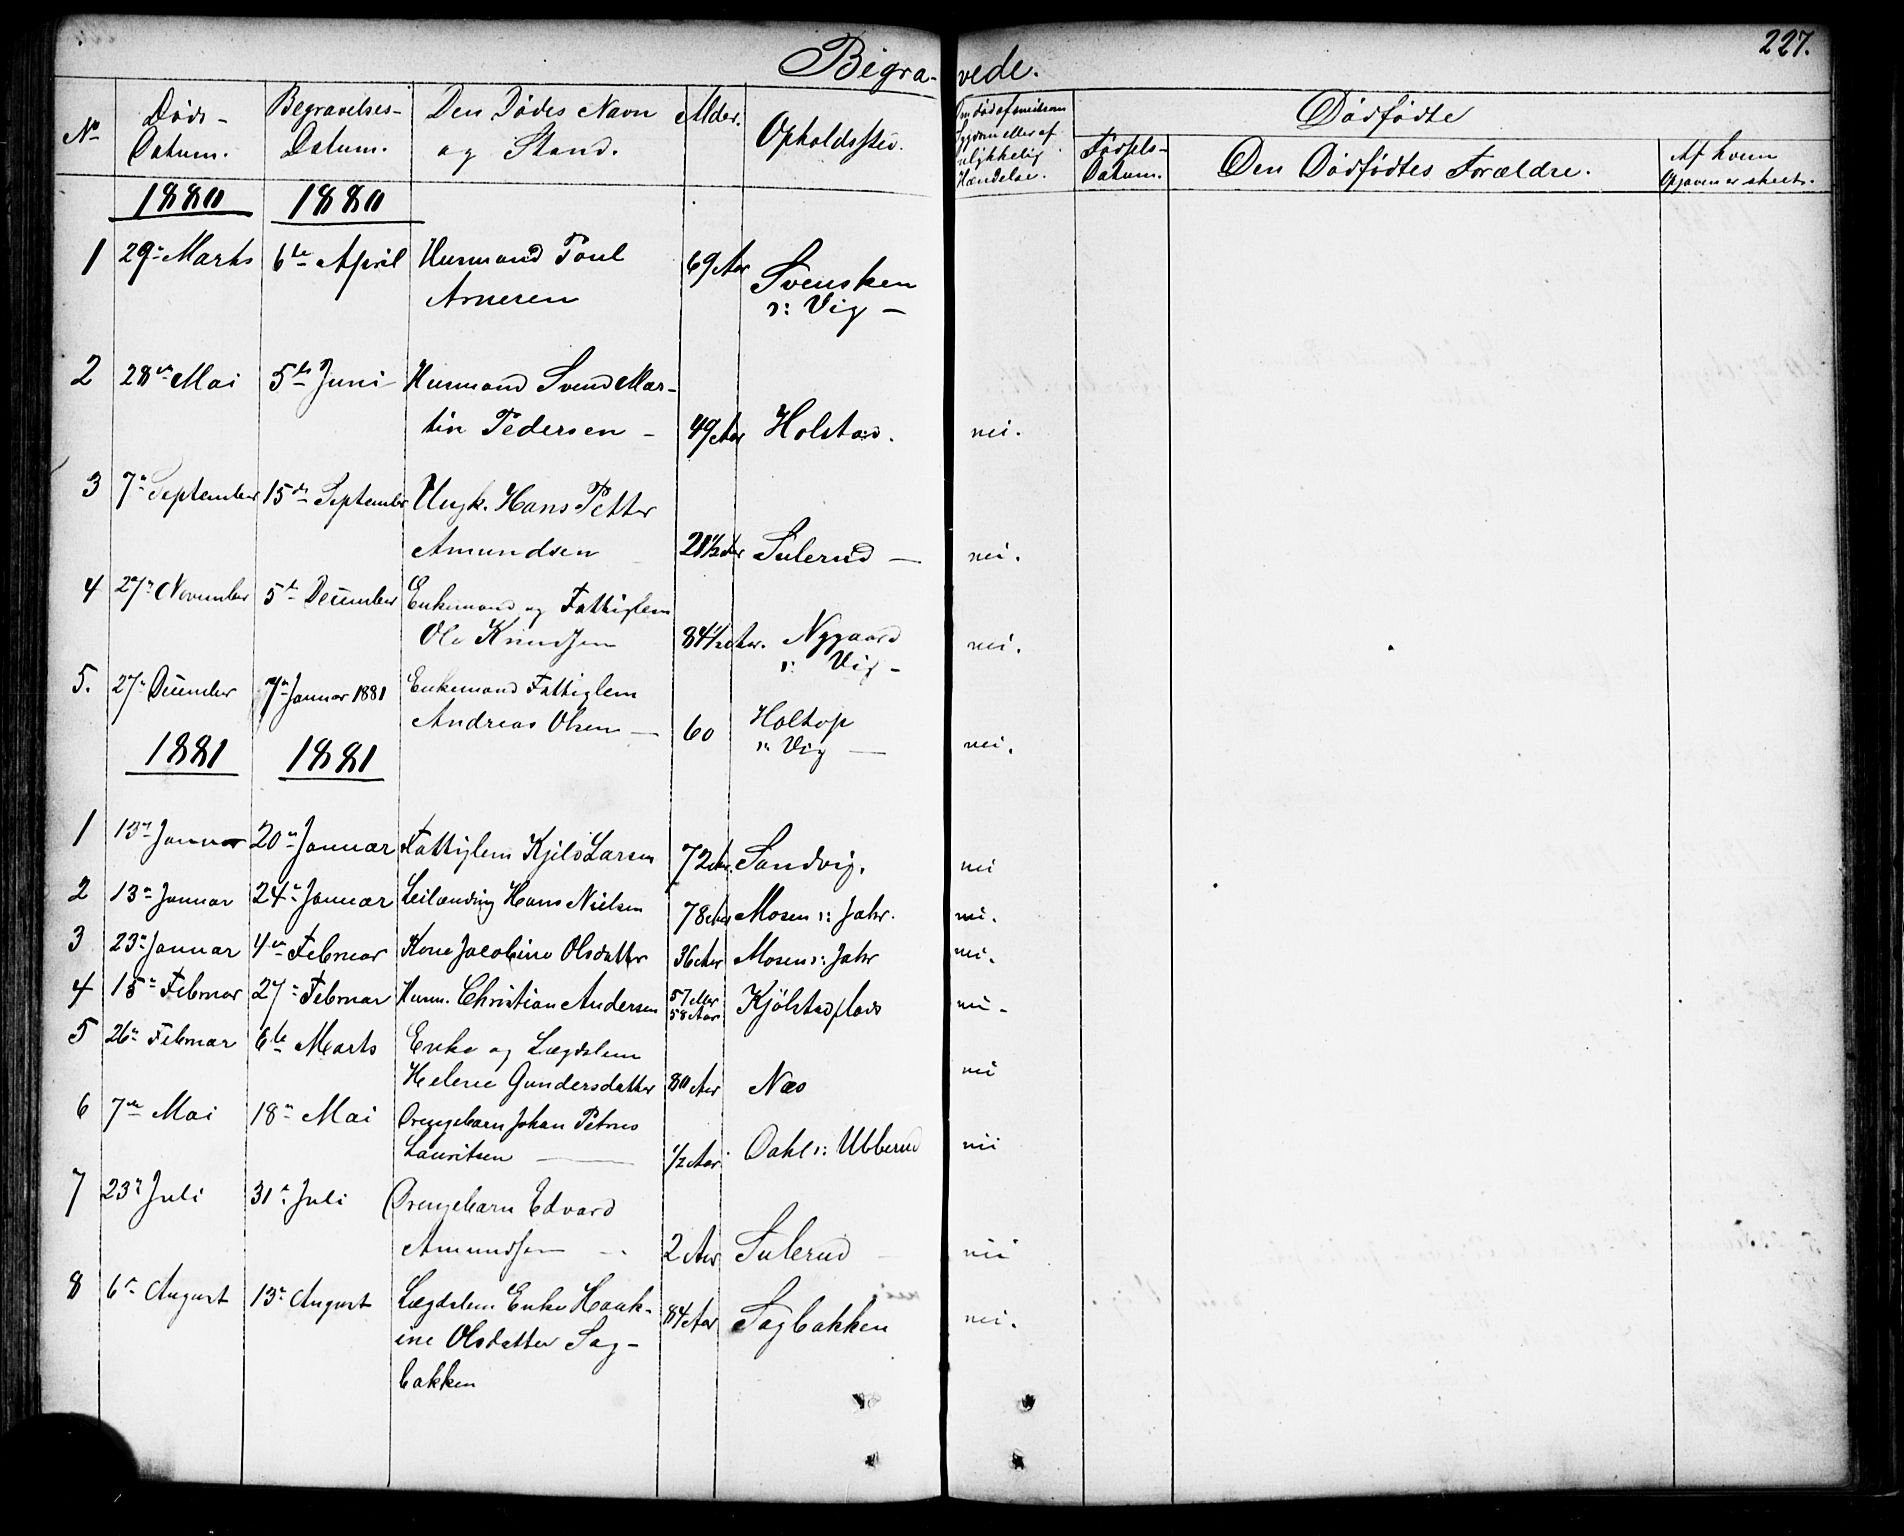 227.
Begra- vede.
No
Døds-
Datum.
Begravelses-
Datum.
Den Dødes Navn
og Stand.
Alder.
Opholdssted.
Om død af smitsom
Sygdom eller af
ulykkelig
Hændelse.
Dødfødte
Fødsels-
Datum.
Den Dødfødtes Forældre.
Af hvem
Opgaven er skeet.
1880 1880
1 29de Marts 6te April Husmand Poul 69 Aar Svensken
Arnesen o: Vig —
2 28de Mai 5te Juni Husmand Svend Mar-
tin Pedersen — 49 Aar Holstad. nei.
3 7de September 15de September Ungk. Hans Petter
Amundsen 21 1/2 Aar Sulerud — nei.
4 27de November 5te December Enkemand og Fattiglem
Ole Knudsen 84 1/2 Aar. Nygaard nei.
o: Vig —
5. 27de December 7de Januar 1881 Enkemand Fattiglem
Andreas Olsen — 60 Holtop
o: Vig — nei.
1881 1881
1 13de Januar 20de Januar Fattiglem Kjeld Larsen 72 Aar. Sandvig. nei
2 13de Januar 24de Januar Leilænding Hans Nielsen 78 Aar Mosen o: Jahr. nei.
3 23de Januar 4de Februar Kone Jacobine Olsdatter 36 Aar Mosen o: Jahr nei.
4 15de Februar 27de Februar Husm. Christian Andersen 57 Aar
58 Aar Kjølstadflads nei.
5 26de Februar 6te Marts Enke og Lægdslem
Helene Gundersdatter 80 Aar Næs nei
6 7de Mai 18de Mai Drengebarn Johan Petrus
Lauritsen — 1/2 Aar Dahl o: Ubberud nei
7 23de Juli 31te Juli Drengebarn Edvard
Amundsen — 2 Aar Sulerud nei
8 6te August 13de August Lægdslem Enke Haak- 84 Aar Sagbakken nei.
ine Olsdatter Sag-
bakken